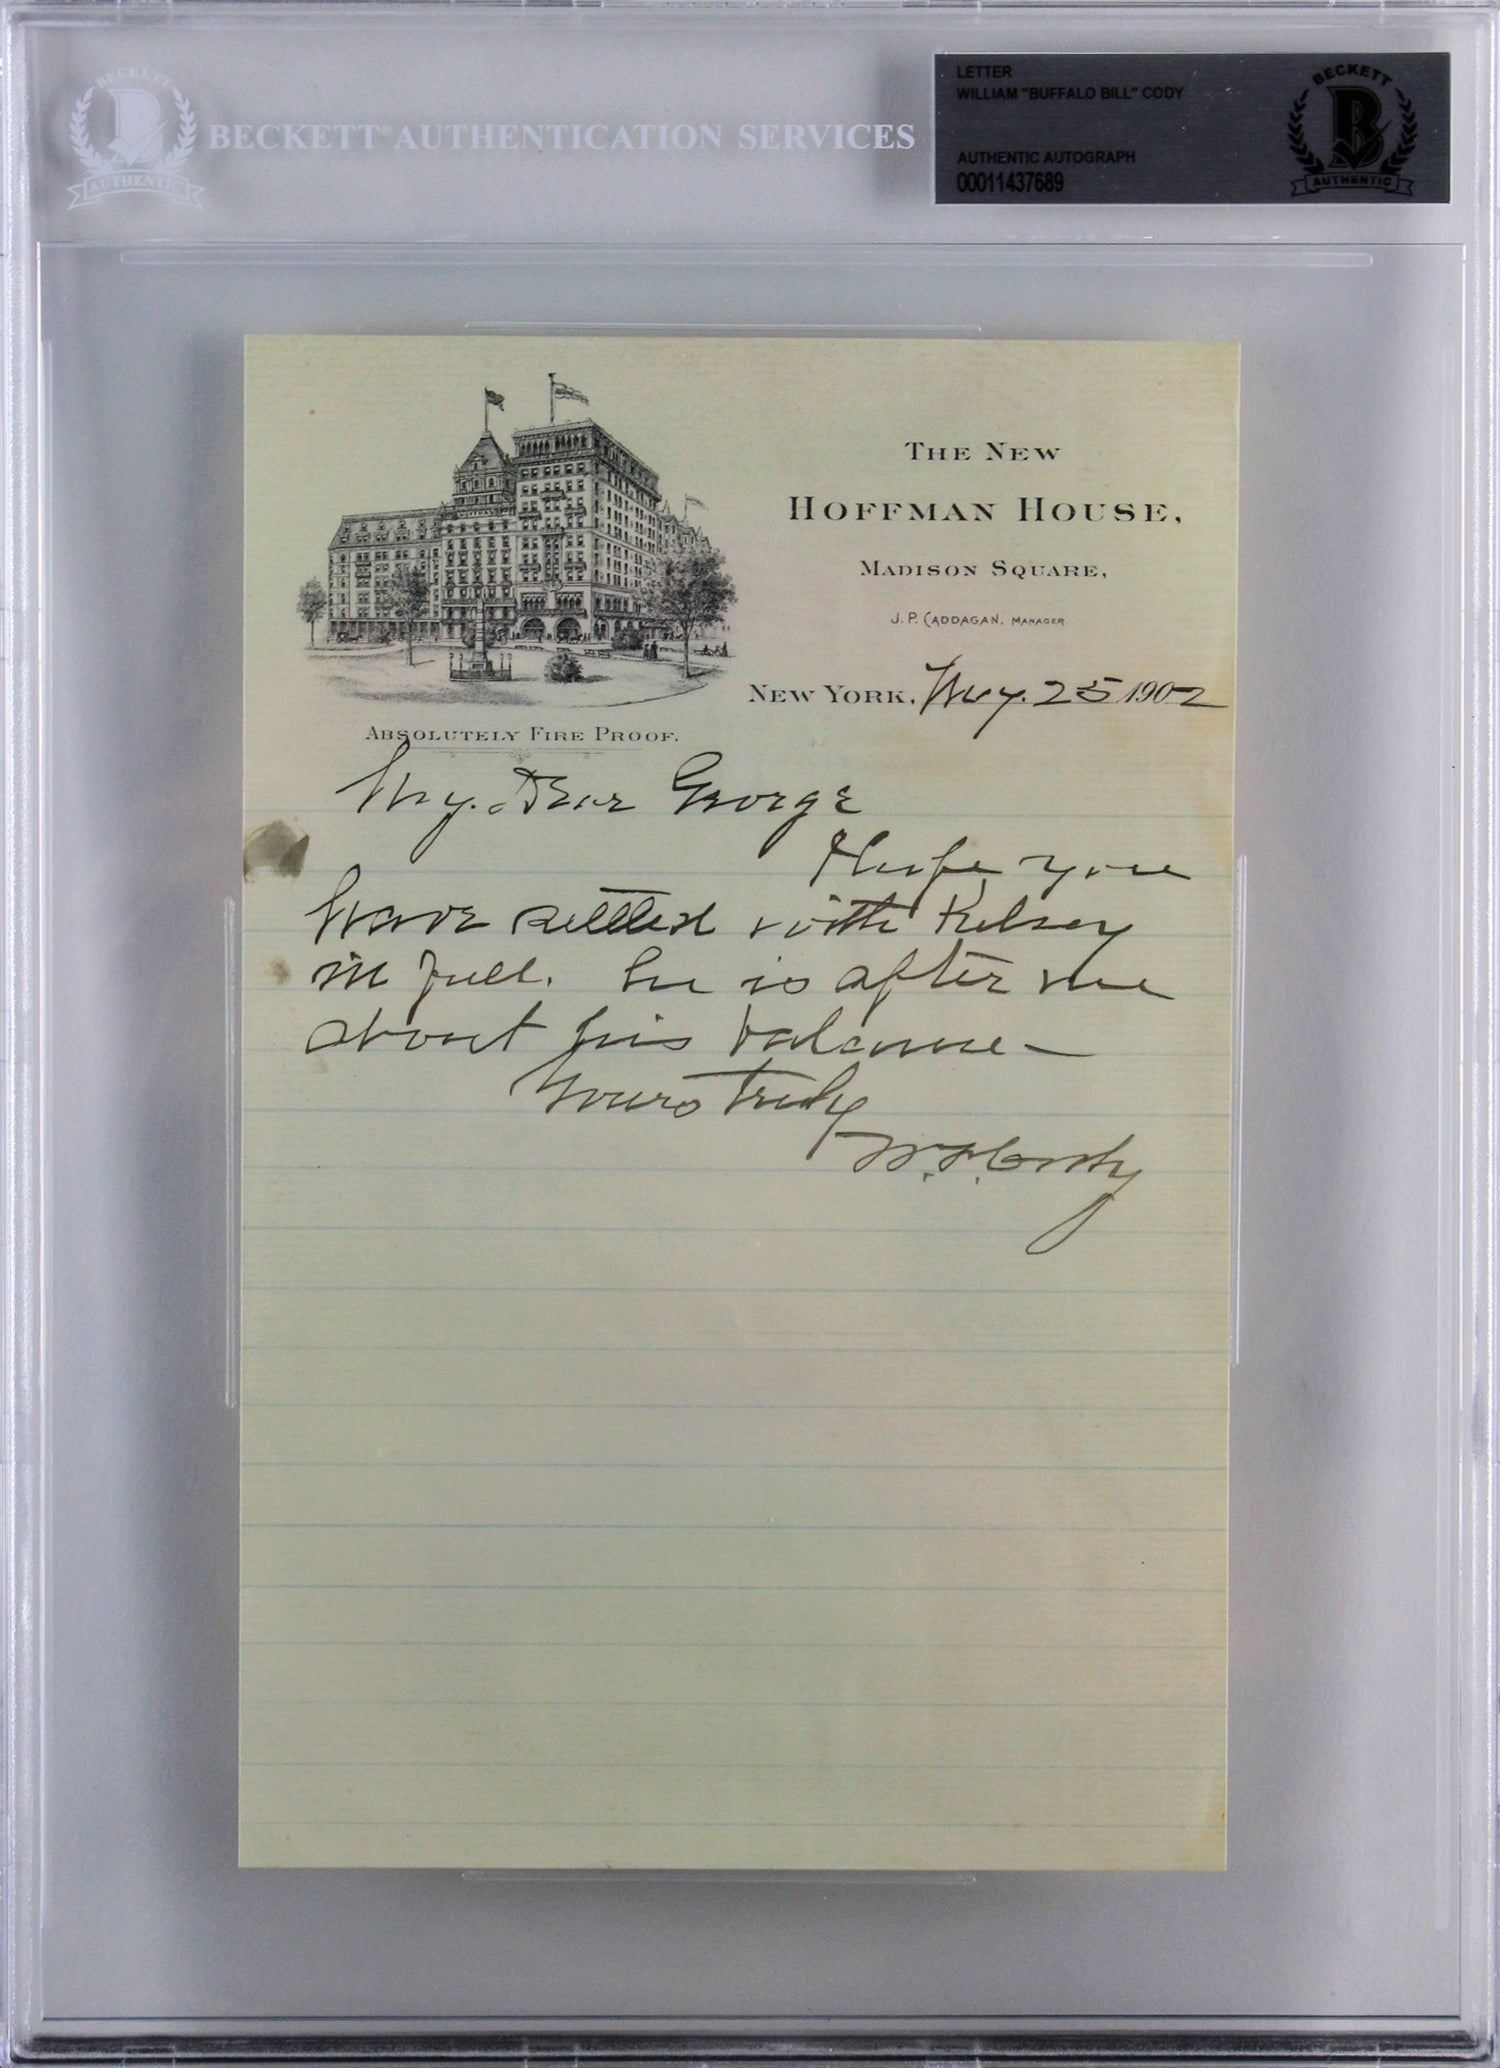 BECKETT
AUTHENTIC
BECKETT® AUTHENTICATION SERVICES
LETTER
WILLIAM "BUFFALO BILL" CODY
AUTHENTIC AUTOGRAPH
00011437689
BECKETT
AUTHENTIC
THE NEW
HOFFMAN HOUSE,
MADISON SQUARE,
J. P. CADDAGAN, MANAGER
NEW YORK, 25 1902
ABSOLUTELY FIRE PROOF.
My. Dear George
Hope you
have settled with Kelsey
in full. he is after me
about his balance -
Yours truly
W. F. Cody